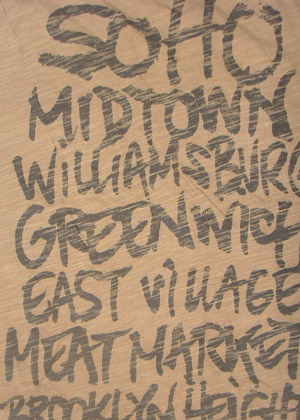 SOHO
MIDTOWN
WILLIAMSBURG
GREENWICH
EAST VILLAGE
MEAT MARKET
BROOKLYN HEIGH